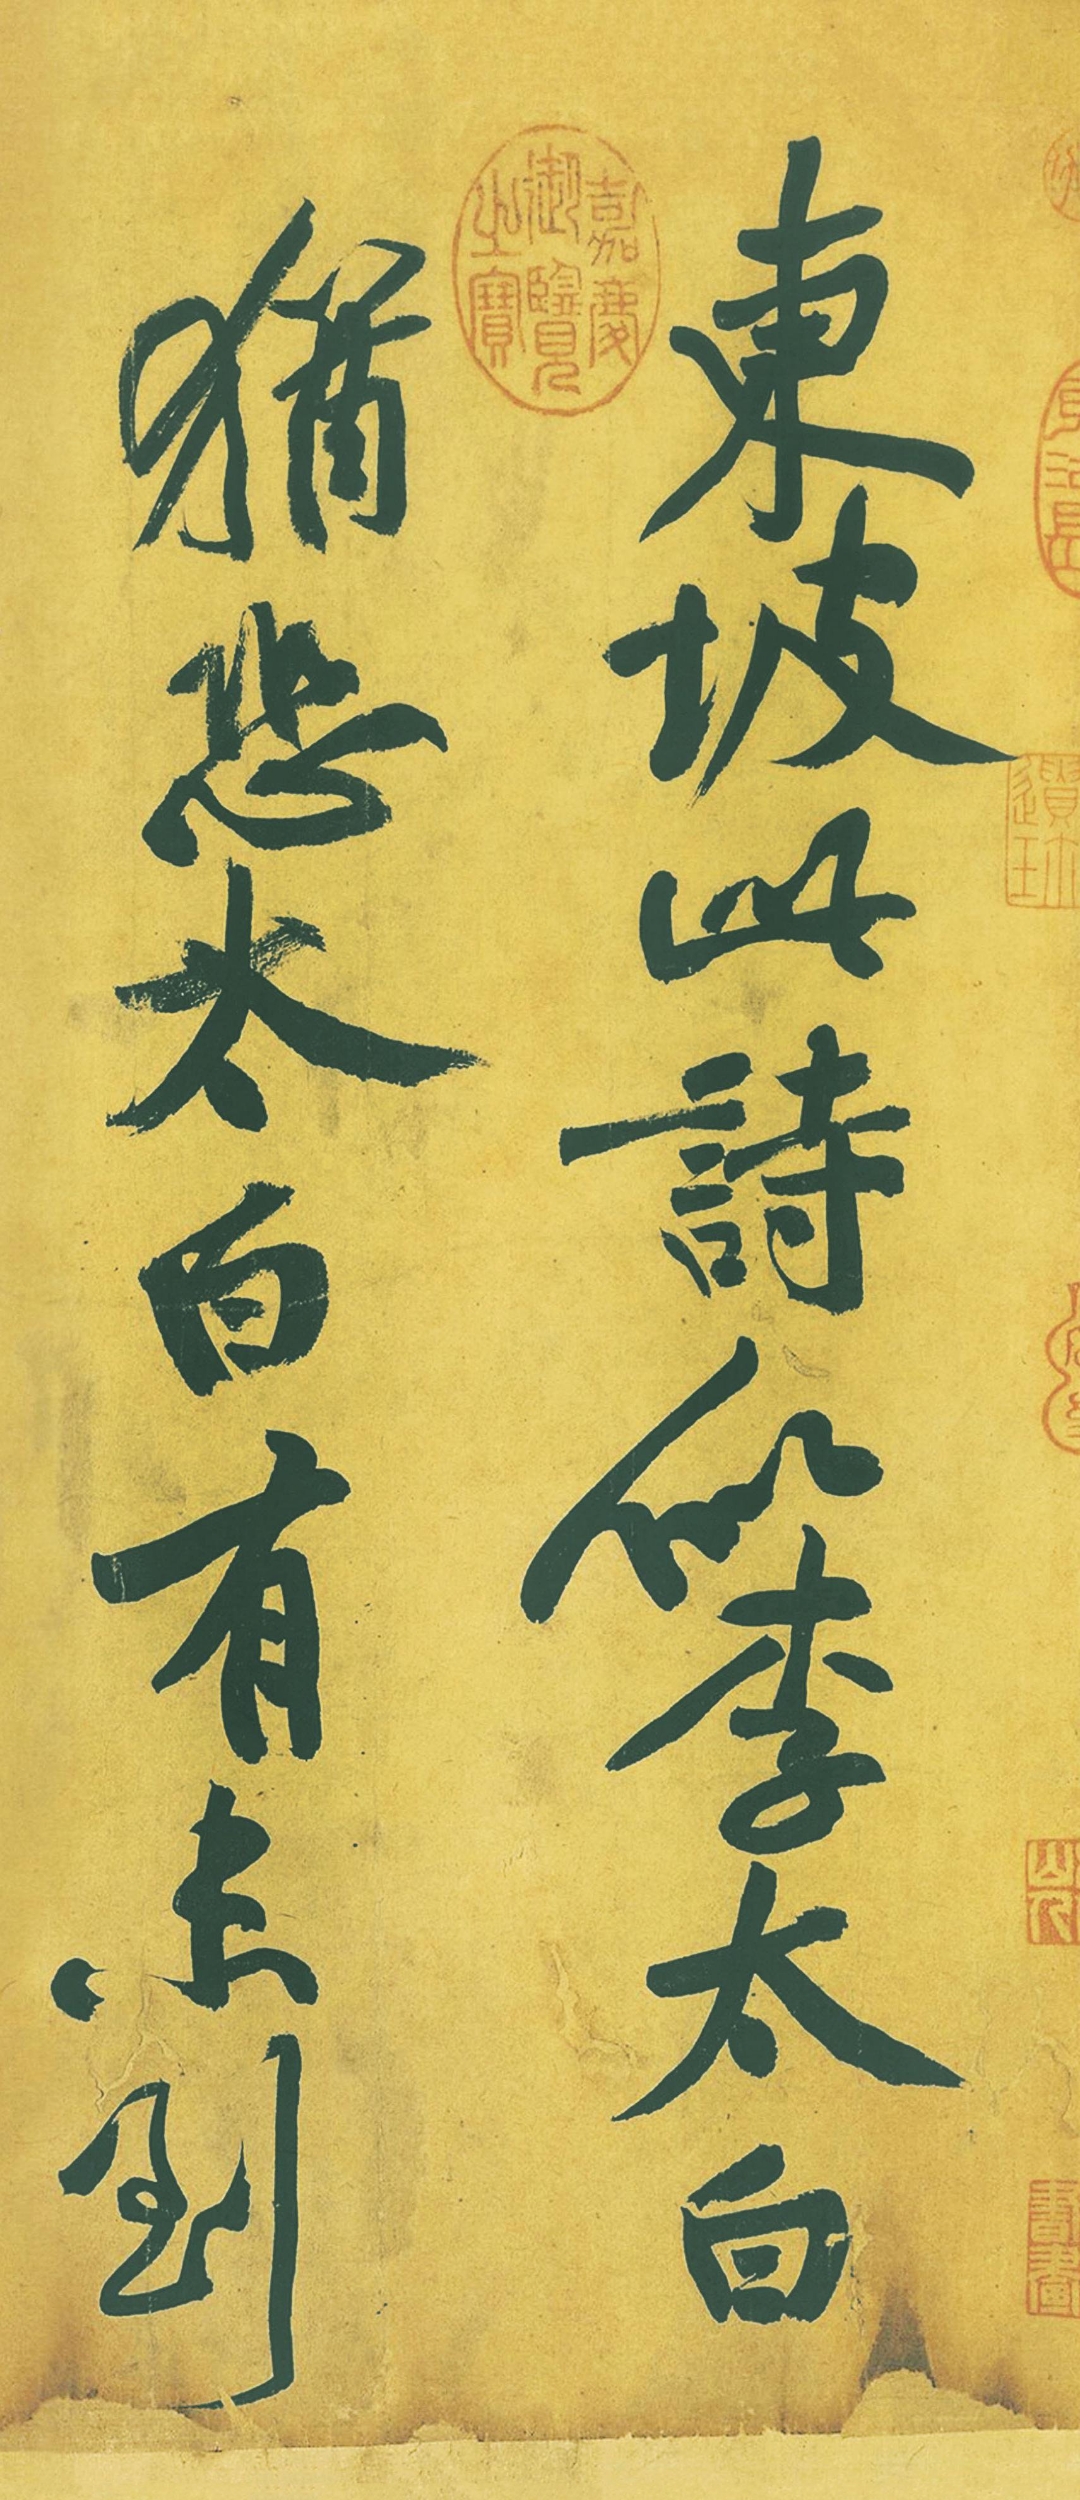 東坡此詩似李太白
猶恐太白有未到
嘉慶御覽之寶